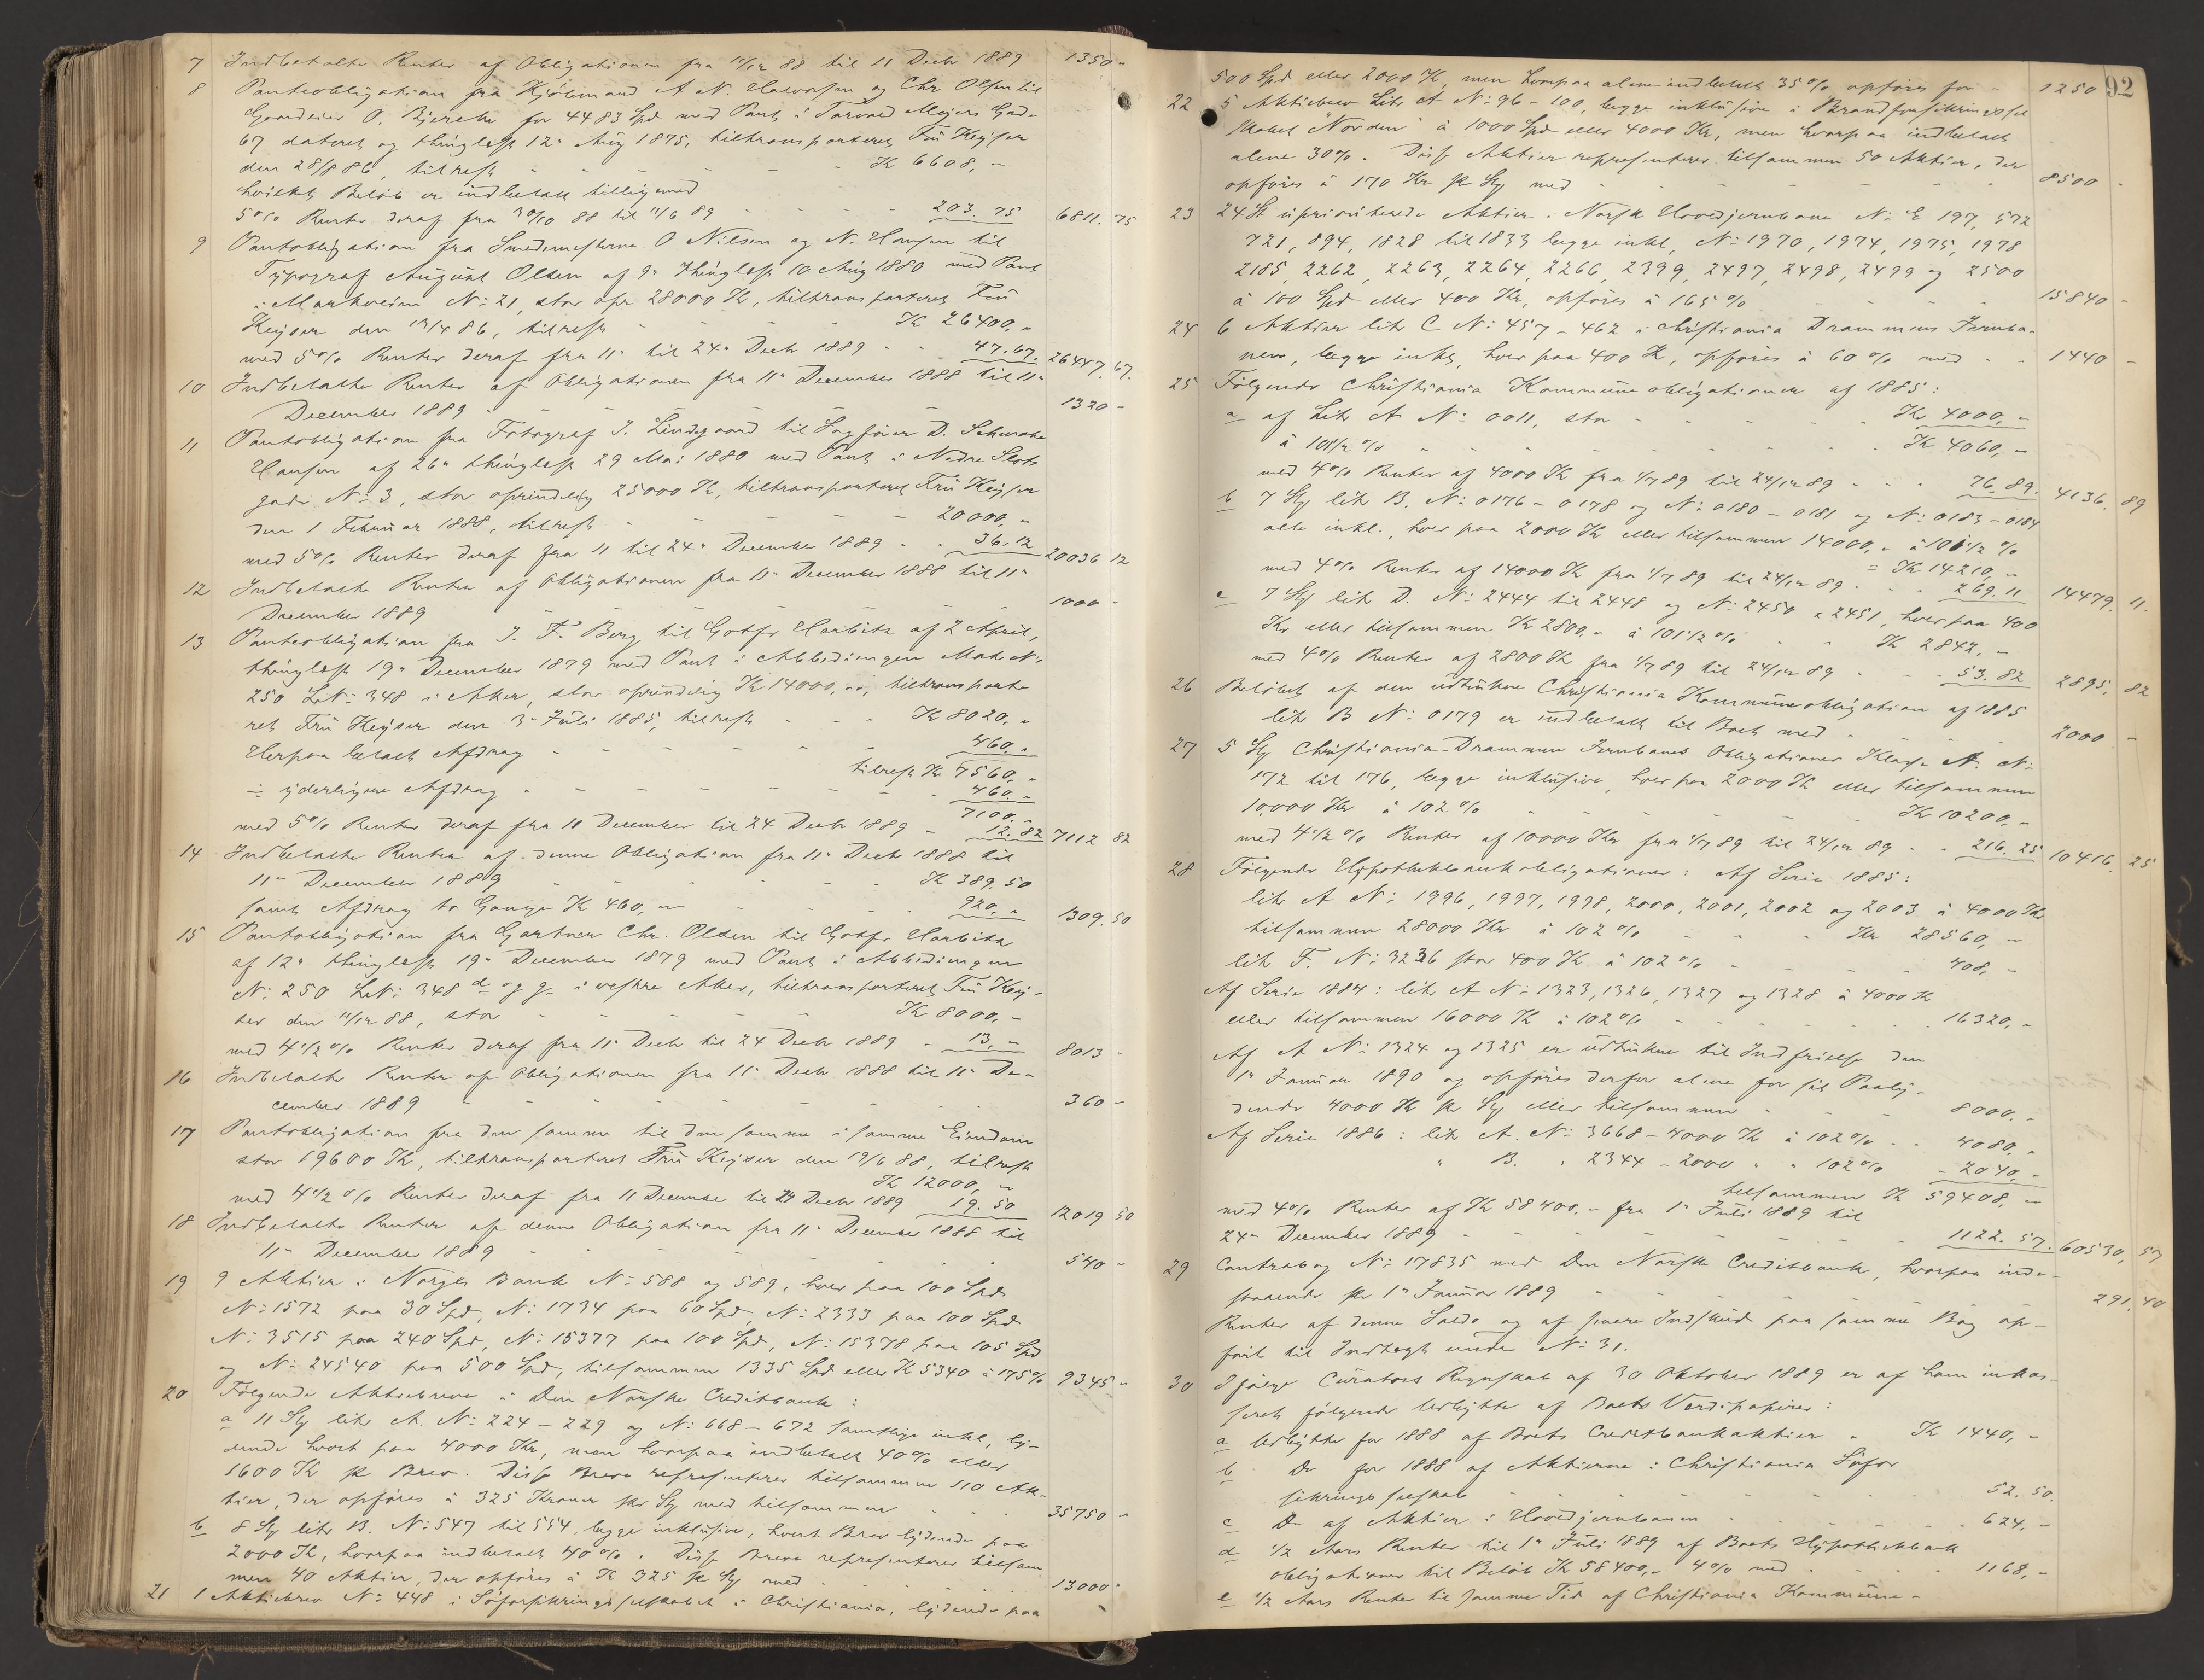 7 Indbetalte Renter af Obligationen fra 11/12 88 til 11 Decbr 1889 1350 -
8 Panteobligation fra Kjøbmand A N. Halvorsen og Chr Olsen til
Gaardeier O. Bjercke for 4483 Spd med Pant i Torvald Meyers Gade
67 dateret og thinglæst 12te Aug 1875, tiltransporteret Fru Keyser
den 28/8 86, tilrest - - - - Kr 6608, -
hvilket Beløb er indbetalt tilligemed
5% Renter deraf fra 30/10 88 til 11/6 89 - - - - 203. 75 6811. 75
9 Panteobligation fra Smedemestrene O Nilsen og N. Hansen til
Typograf August Olsen af 9de thinglæst 10 Aug 1880 med Pant
i Markveien No 21, stor opr 28000 Kr, tiltransporteret Fru
Keyser den 19/4 86, tilrest - - - - Kr 26400, -
med 5% Renter deraf fra 11te til 24de Decbr 1889 - - 47. 67. 26447. 67.
10 Indbetalte Renter af Obligationen fra 11te December 1888 til 11te
December 1889 - - - - - 1320 -
11 Panteobligation fra Fotograf J. Lindegaard til Sagfører D. Schwabe
Hansen af 26de thinglæst 29 Mai 1880 med Pant i Nedre Slots
gade No 3, stor oprindelig 25000 Kr, tiltransporteret Fru Keyser
den 1 Februar 1888, tilrest - - - - 20000, -
med 5% Renter deraf fra 11 til 24de December 1889 - - 36, 12 20036 12
12 Indbetalte Renter af Obligationen fra 11te December 1888 til 11te
December 1889 - - - - - 1000 -
13 Panteobligation fra J. F. Berg til Gotfr Harbitz af 2 April,
thinglæst 19de December 1879 med Pant i Abbedingen Matr No
250 LNo 348 i Aker, stor oprindelig Kr 14000, -, tiltransporte
ret Fru Keyser den 3de Juli 1885, tilrest - - - Kr 8020, -
Herpaa betalt Afdrag - - - - - 460, -
tilrest Kr 7560, -
÷ yderligere Afdrag - - - - - 460, -
7100, -
med 5% Renter deraf fra 11 December til 24 Decbr 1889 - 12. 82 7112 82
14 Indbetalte Renter af denne Obligation fra 11te Decbr 1888 til
11te December 1889 - - - - Kr 389. 50
samt Afdrag to Gange Kr 460, - - - - 920, - 1309. 50
15 Panteobligation fra Gartner Chr. Olsen til Gotfr Harbitz
af 12te thinglæst 19de December 1879 med Pant i Abbedingen
No 250 LNo 348 d og g i vestre Aker, tiltransporteret Fru Key-
ser den 11/12 88, stor - - - - Kr 8000, -
med 4 1/2 % Renter deraf fra 11te Decbr til 24 Decbr 1889 - 13, - 8013 -
16 Indbetalte Renter af Obligationen fra 11te Decbr 1888 til 11te De-
cember 1889 - - - - - 360 -
17 Panteobligation fra den samme til den samme i samme Eiendom
stor 19600 Kr, tiltransporteret Fru Keyser den 19/6 88, tilrest
Kr 12000, -
med 4 1/2 % Renter deraf fra 11 December til 24 Decbr 1889 19. 50 12019 50
18 Indbetalte Renter af denne Obligation fra 11te December 1888 til
11te December 1889 - - - - - 540 -
19 9 Aktier i Norges Bank No 588 og 589, hver paa 100 Spd
No 1572 paa 30 Spd, No 1734 paa 60 Spd, No 2333 paa 100 Spd
No 3515 paa 240 Spd, No 15377 paa 100 Spd, No 15378 paa 105 Spd
og No 24540 paa 500 Spd, tilsammen 1335 Spd eller Kr 5340 à 175% 9345 -
20 Følgende Aktiebreve i Den Norske Creditbank:
a 11 Stk litr A. No 224 - 229 og No 668 - 672 samtlige inkl, ly-
dende hvert paa 4000 Kr, men hvorpaa indbetalt 40% eller
1600 Kr pr Brev. Disse Breve repræsenterer tilsammen 110 Ak-
tier, der opføres à 325 Kroner pr Stk med tilsammen - - 35750 -
b 8 Stk litr B. No 547 til 554, begge inklusive, hvert Brev lydende paa
2000 Kr, hvorpaa indbetalt 40%. Disse Breve repræsenterer tilsam
men 40 Aktier, der opføres à Kr 325 pr Stk med - - - 13000 -
21 1 Aktiebrev No 448 i Søforsikringsselskabet i Christiania, lydende paa
92
500 Spd eller 2000 Kr, men hvorpaa alene indbetalt 35% opføres for - 1250 -
22 5 Aktiebrev Litr A No 96 - 100, begge inklusive i Brandforsikringssel
skabet "Norden" à 1000 Spd eller 4000 Kr, men hvorpaa indbetalt
alene 30%. Disse Aktier repræsenterer tilsammen 50 Aktier, der
opføres à 170 Kr pr Stk med - - - - 8500 -
23 24 St uprioriterede Aktier i Norsk Hovedjernbane No E 197, 572
721, 894, 1828 til 1833 begge inkl, No 1970, 1974, 1975, 1978
2185, 2262, 2263, 2264, 2266, 2399, 2497, 2498, 2499 og 2500
à 100 Spd eller 400 Kr, opføres à 165% - - - - 15840 -
24 6 Aktier litr C No 457 - 462 i Christiania Drammens Jernba-
nen, begge inkl, hver paa 400 Kr, opføres à 60% med - - 1440 -
25 Følgende Christiania Kommuneobligationer af 1885:
a af Litr A No 0011, stor - - - - Kr 4000, -
à 101 1/2 % - - - - - Kr 4060, -
med 4% Renter af 4000 Kr fra 1/7 89 til 24/12 89 - - - 76. 89. 4136. 89
b 7 Stk litr B. No 0176 - 0178 og No 0180 - 0181 og No 0183 - 0184
alle inkl., hver paa 2000 Kr eller tilsammen 14000, - à 101 1/2 %
= Kr 14210, -
med 4% Renter af 14000 Kr fra 1/7 89 til 24/12 89 - - - 269. 11 14479. 11.
c 7 Stk litr D. No 2444 til 2448 og No 2450 & 2451, hver paa 400
Kr eller tilsammen Kr 2800, - à 101 1/2 % - - Kr 2842, -
med 4% Renter af 2800 Kr fra 1/7 89 til 24/12 89 - - - 53. 82 2895, 82
26 Beløbet af den udtrukne Christiania Kommuneobligation af 1885
litr B No 0179 er indbetalt til Boet med - - - 2000 -
27 5 Stk Christiania-Drammen Jernbanes Obligationer Klasse A. No
172 til 176, begge inklusive, hver paa 2000 Kr eller tilsammen
10,000 Kr à 102% - - - - - Kr 10200, -
med 4 1/2 % Renter af 10000 Kr fra 1/7 89 til 24/12 89 - - 216. 25 10416. 25
28 Følgende Hypothekbankobligationer: Af Serie 1885:
litr A No 1996, 1997, 1998, 2000, 2001, 2002 og 2003 à 4000 Kr
tilsammen 28000 Kr à 102% - - - Kr 28560, -
litr F. No 3236 stor 400 Kr à 102% - - - - 408, -
Af Serie 1884: litr A No 1323, 1326, 1327 og 1328 à 4000 Kr
eller tilsammen 16000 Kr à 102% - - - - 16320, -
Af A No 1324 og 1325 er udtrukne til Indfrielse den
1te Januar 1890 og opføres derfor alene for sit Paaly-
dende 4000 Kr pr Stk eller tilsammen - - - 8000, -
Af Serie 1886: litr A. No 3668 - 4000 Kr à 102% - - 4080, -
" B. " 2344 - 2000 " " 102% - 2040, -
tilsammen Kr 59408, -
med 4% Renter af Kr 58400, - fra 1te Juli 1889 til
24de December 1889 - - - - - 1122. 57. 60530, 57
29 Contrabog No 17835 med Den Norske Creditbank, hvorpaa inde-
staaende pr 1te Januar 1889 - - - - - 291. 40
Renter af denne Saldo og af senere Indskud paa samme Bog op-
ført til Indtægt under No 31.
30 Ifølge Curators Regnskab af 30 Oktober 1889 er af ham inkas-
seret følgende Udbytte af Boets Værdipapirer:
a Udbytte for 1888 af Boets Creditbankaktier - Kr 1440, -
b Do for 1888 af Aktierne i Christiania Søfor
sikringsselskab - - - - - 52. 50.
c Do af Aktier i Hovedjernbanen - - - - 624, -
d 1/2 Aars Renter til 1te Juli 1889 af Boets Hypothekbank
obligationer til Beløb Kr 58400, - 4% med - - - 1168, -
e 1/2 Aars Rente til samme Tid af Christiania Kommune-